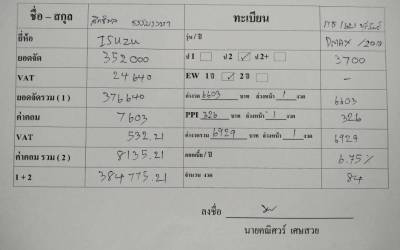 ชื่อ – สกุล ทะเบียน
ยี่ห้อ ISUZU รุ่น / ปี DMAX / 2019
ยอดจัด 352000 ป 1 ป 2 ✓ ป 2+ 3700
VAT 24640 EW 1 ปี ✓ 2 ปี -
ยอดจัดรวม ( 1 ) 376640 ค่างวด 6603 บาท ล่วงหน้า 1 งวด 6603
ค่าคอม 7603 PPI 326 บาท ล่วงหน้า 1 งวด 326
VAT 532.21 ค่างวดรวม 6929 บาท ล่วงหน้า 1 งวด 6929
ค่าคอม รวม ( 2 ) 8135.21 ดอกเบี้ย / ปี 6.75 %
1 + 2 384775.21 จำนวน งวด 84
ลงชื่อ
นายคณิศวร์ เศษสวย